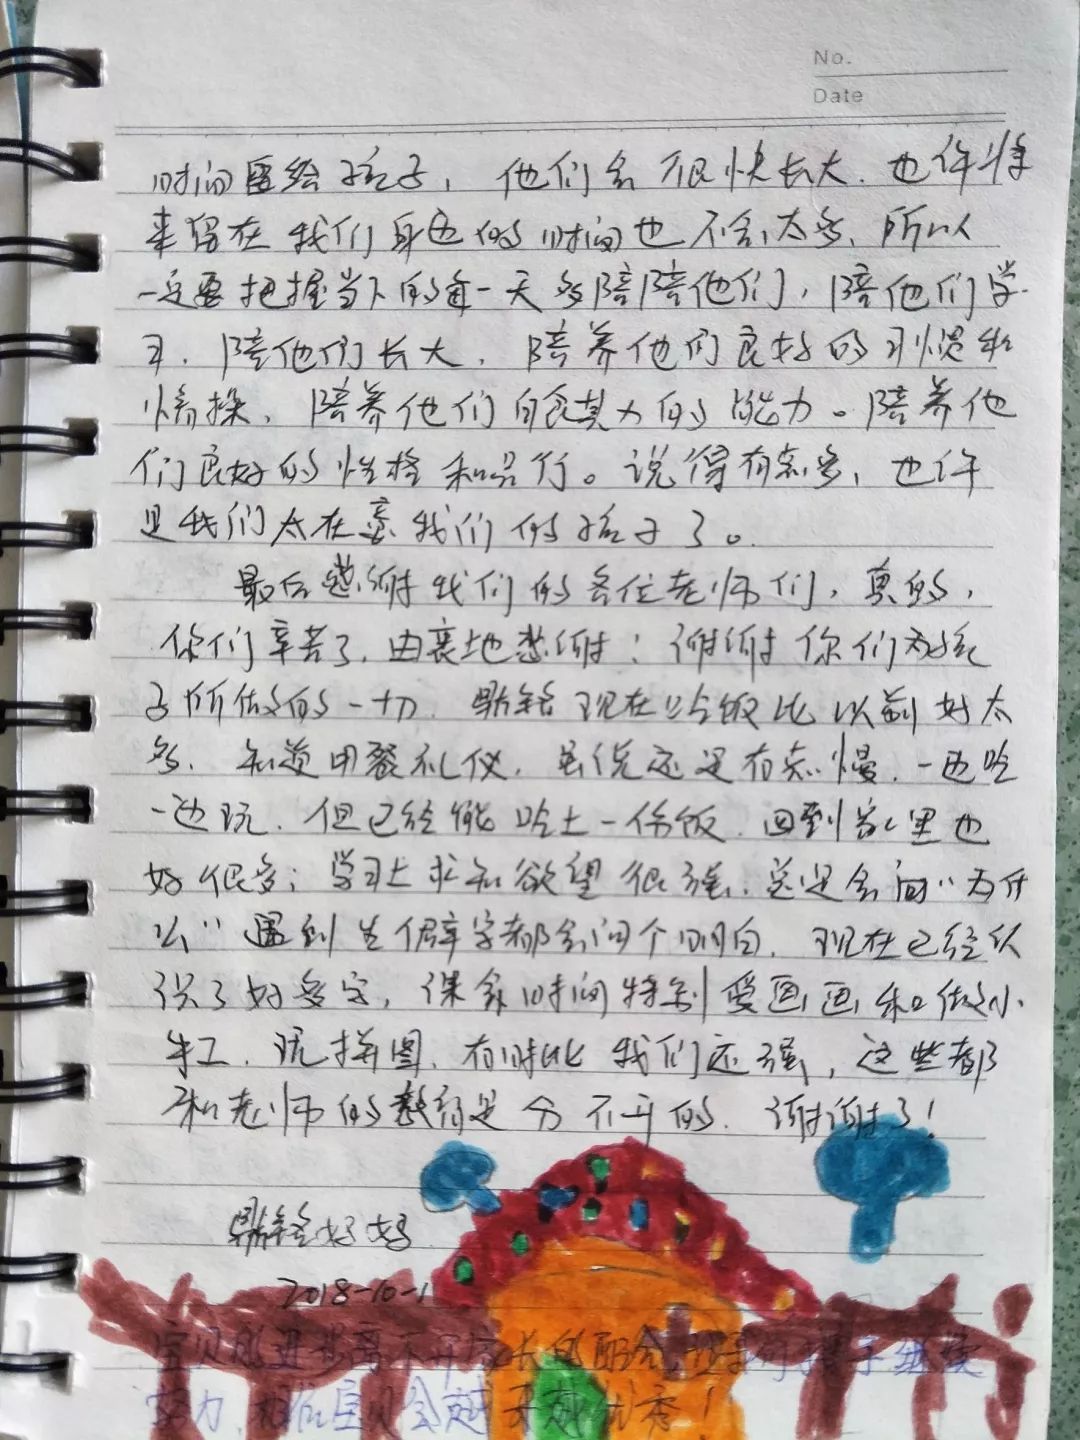 No.
Date
时间留给孩子，他们会很快长大．也许将
来留在我们身边的时间也不会太多、所以
一定要把握当下的每一天多陪陪他们，陪他们学
习．陪他们长大．陪养他们良好的习惯和
情操．陪养他们自食其力的能力。陪养他
们良好的性格和品行。说得有点多，也许
是我们太在意我们的孩子了。
最后感谢我们的各位老师们，真的，
你们辛苦了．由衷地感谢：谢谢你们为孩
子所做的一切．鹏铭现在吃饭比以前好太
多．知道用餐礼仪．虽说还是有点慢．一边吃
一边玩．但已经能吃上一份饭．回到家里也
好很多；学习上求知欲望很强．总是会问"为什
么"遇到生僻字都会问个明白．现在已经认
识了好多字，课余时间特别爱画画和做小
手工．玩拼图．有时比我们还强，这些都
和老师的教育是分不开的．谢谢了！
妈妈
2018-10-1
宝贝的进步离不开家长的配合，
努力．相信宝贝会越来越优秀！